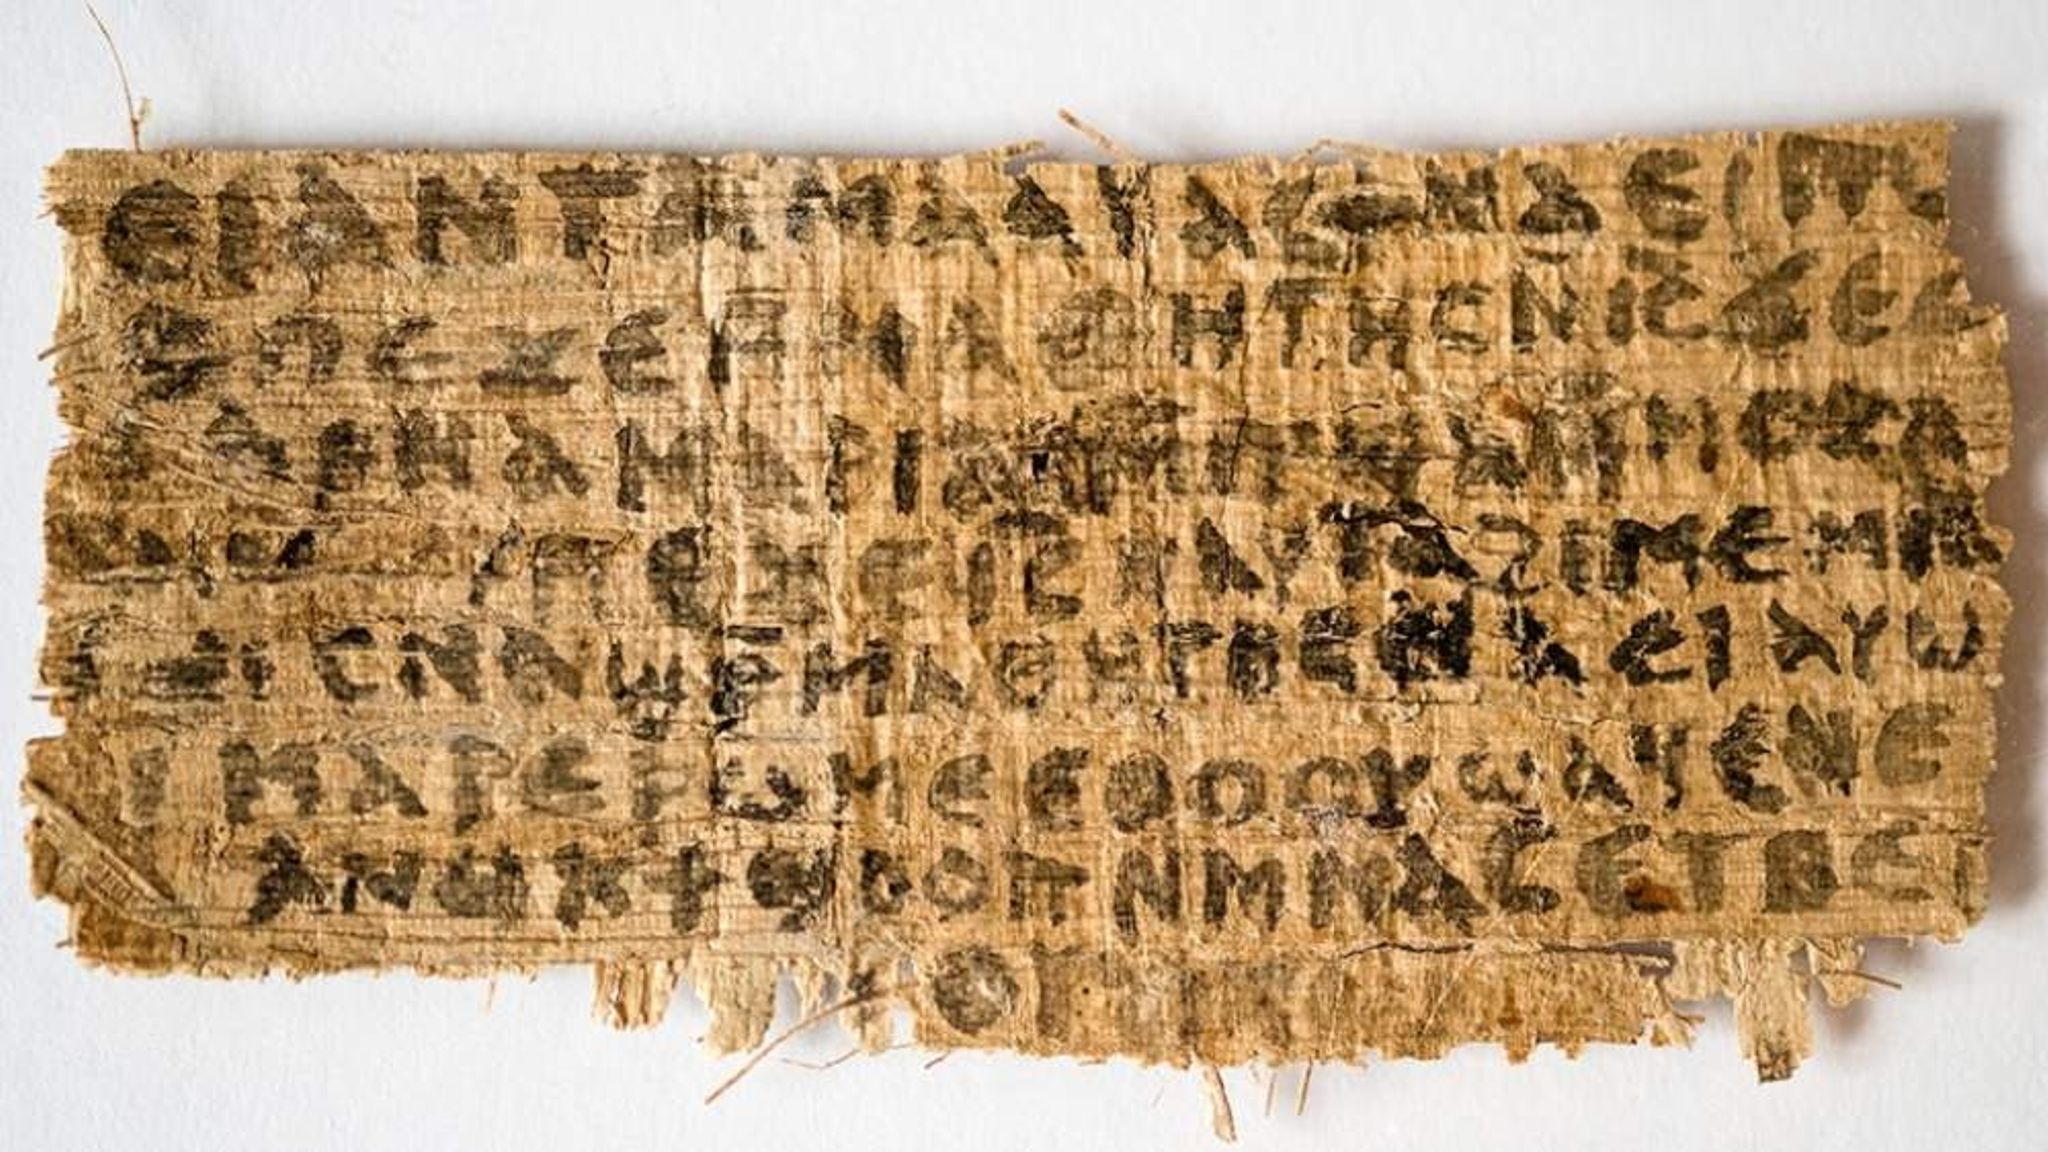 ⲉⲓⲁⲛⲧⲁⲙⲁⲁⲩⲁⲥϯⲛⲁⲉⲓⲡⲱ
ⲡⲉϫⲉⲙⲙⲁⲑⲏⲧⲏⲥⲛⲓ̅ⲥ̅ϫⲉⲥ
ⲁⲣⲛⲁⲙⲁⲣⲓⲁⲙⲙⲡϣⲁⲙⲙⲟⲥⲁ
ⲡⲉϫⲉⲓ̅ⲥ̅ⲛⲁⲩⲧⲁϩⲓⲙⲉⲙⲛ
ⲥⲛⲁϣⲣⲙⲁⲑⲏⲧⲏⲥⲛⲁⲉⲓⲁⲩⲱ
ⲓⲙⲁⲣⲉⲣⲱⲙⲉⲉⲑⲟⲟⲩϣⲁϥⲉⲛⲉ
ⲁⲛⲟⲕϯϣⲟⲟⲡⲛⲙⲙⲁⲥⲉⲧⲃⲉⲡ